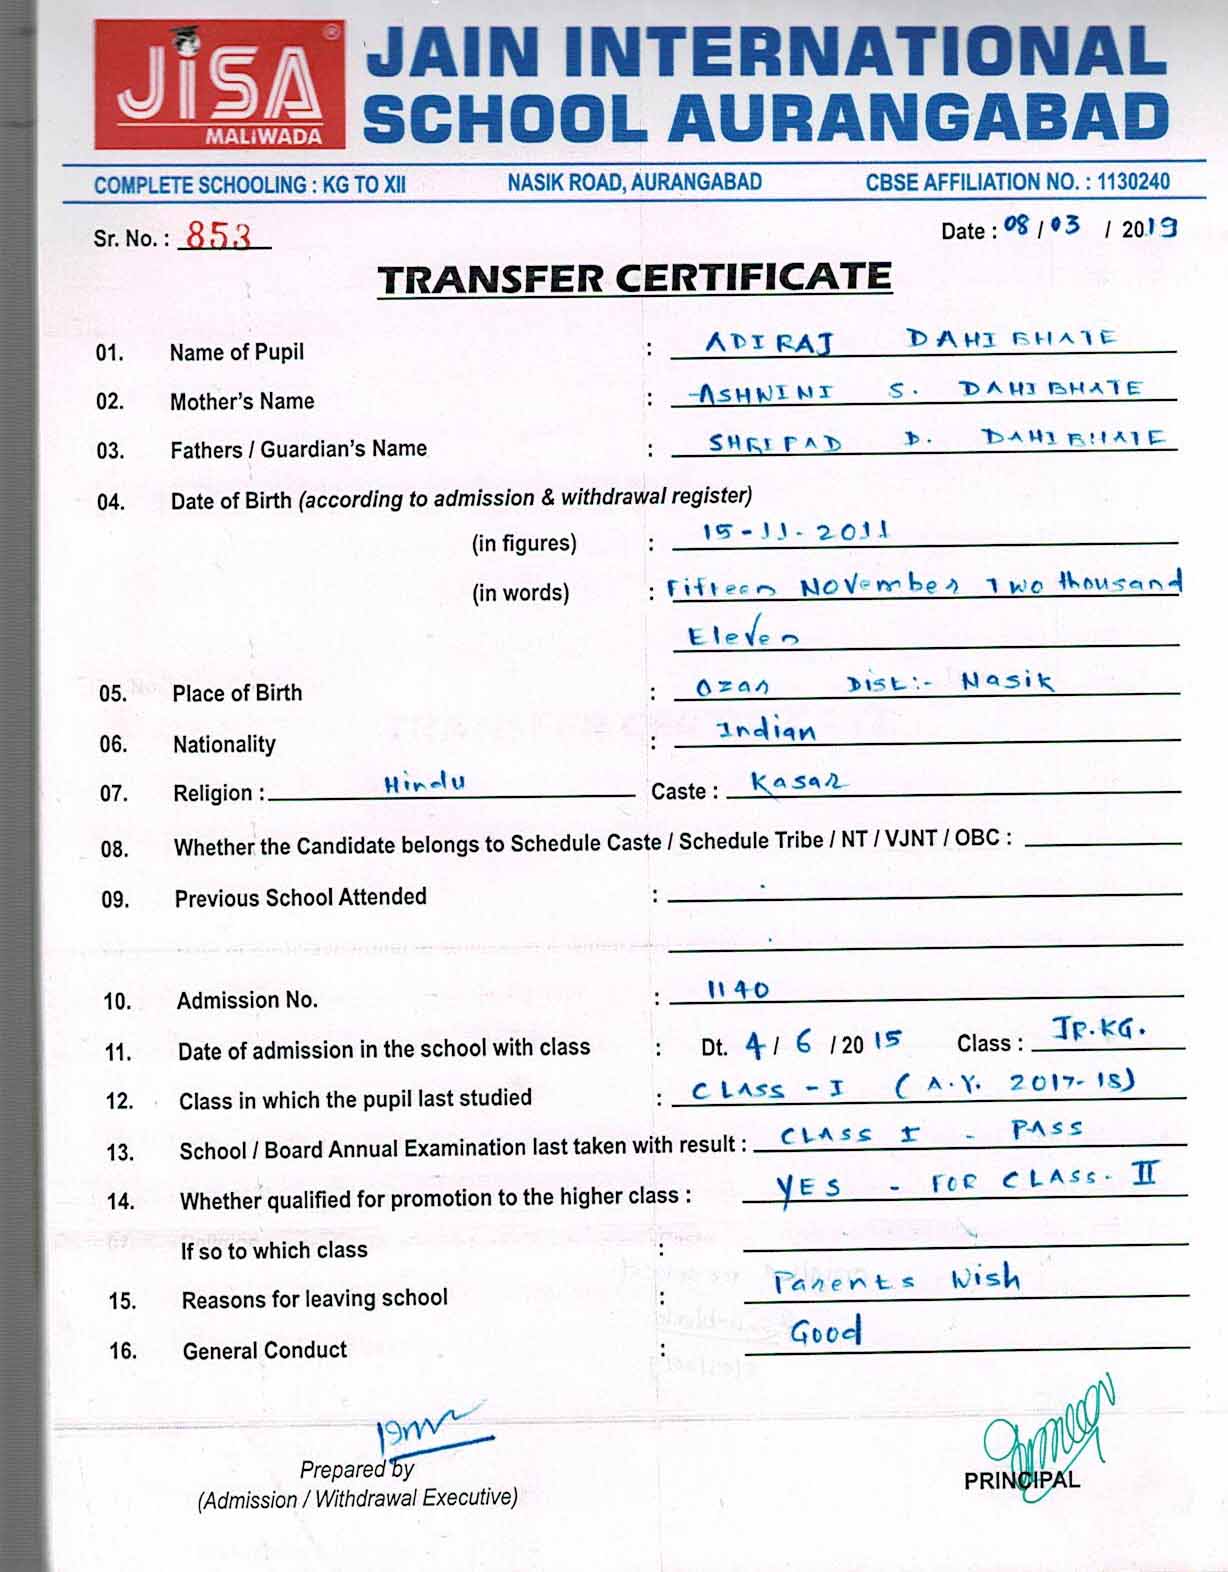 JiSA ®
MALiWADA
JAIN INTERNATIONAL
SCHOOL AURANGABAD
COMPLETE SCHOOLING : KG TO XII NASIK ROAD, AURANGABAD CBSE AFFILIATION NO. : 1130240
Sr. No. : 853 Date : 08 / 03 / 2019
TRANSFER CERTIFICATE
01. Name of Pupil : ADIRAJ DAHIBHATE
02. Mother's Name : ASHWINI S. DAHIBHATE
03. Fathers / Guardian's Name : SHRIPAD D. DAHIBHATE
04. Date of Birth (according to admission & withdrawal register)
(in figures) : 15-11-2011
(in words) : Fifteen November Two thousand
Eleven
05. Place of Birth : Ozar Dist:- Nasik
06. Nationality : Indian
07. Religion : Hindu Caste : Kasar
08. Whether the Candidate belongs to Schedule Caste / Schedule Tribe / NT / VJNT / OBC :
09. Previous School Attended :
10. Admission No. : 1140
11. Date of admission in the school with class : Dt. 4 / 6 / 2015 Class : JR.KG.
12. Class in which the pupil last studied : CLASS - I (A.Y. 2017-18)
13. School / Board Annual Examination last taken with result : CLASS I - PASS
14. Whether qualified for promotion to the higher class : YES - FOR CLASS- II
If so to which class :
15. Reasons for leaving school : Parents Wish
16. General Conduct : Good
Prepared by
(Admission / Withdrawal Executive)
PRINCIPAL